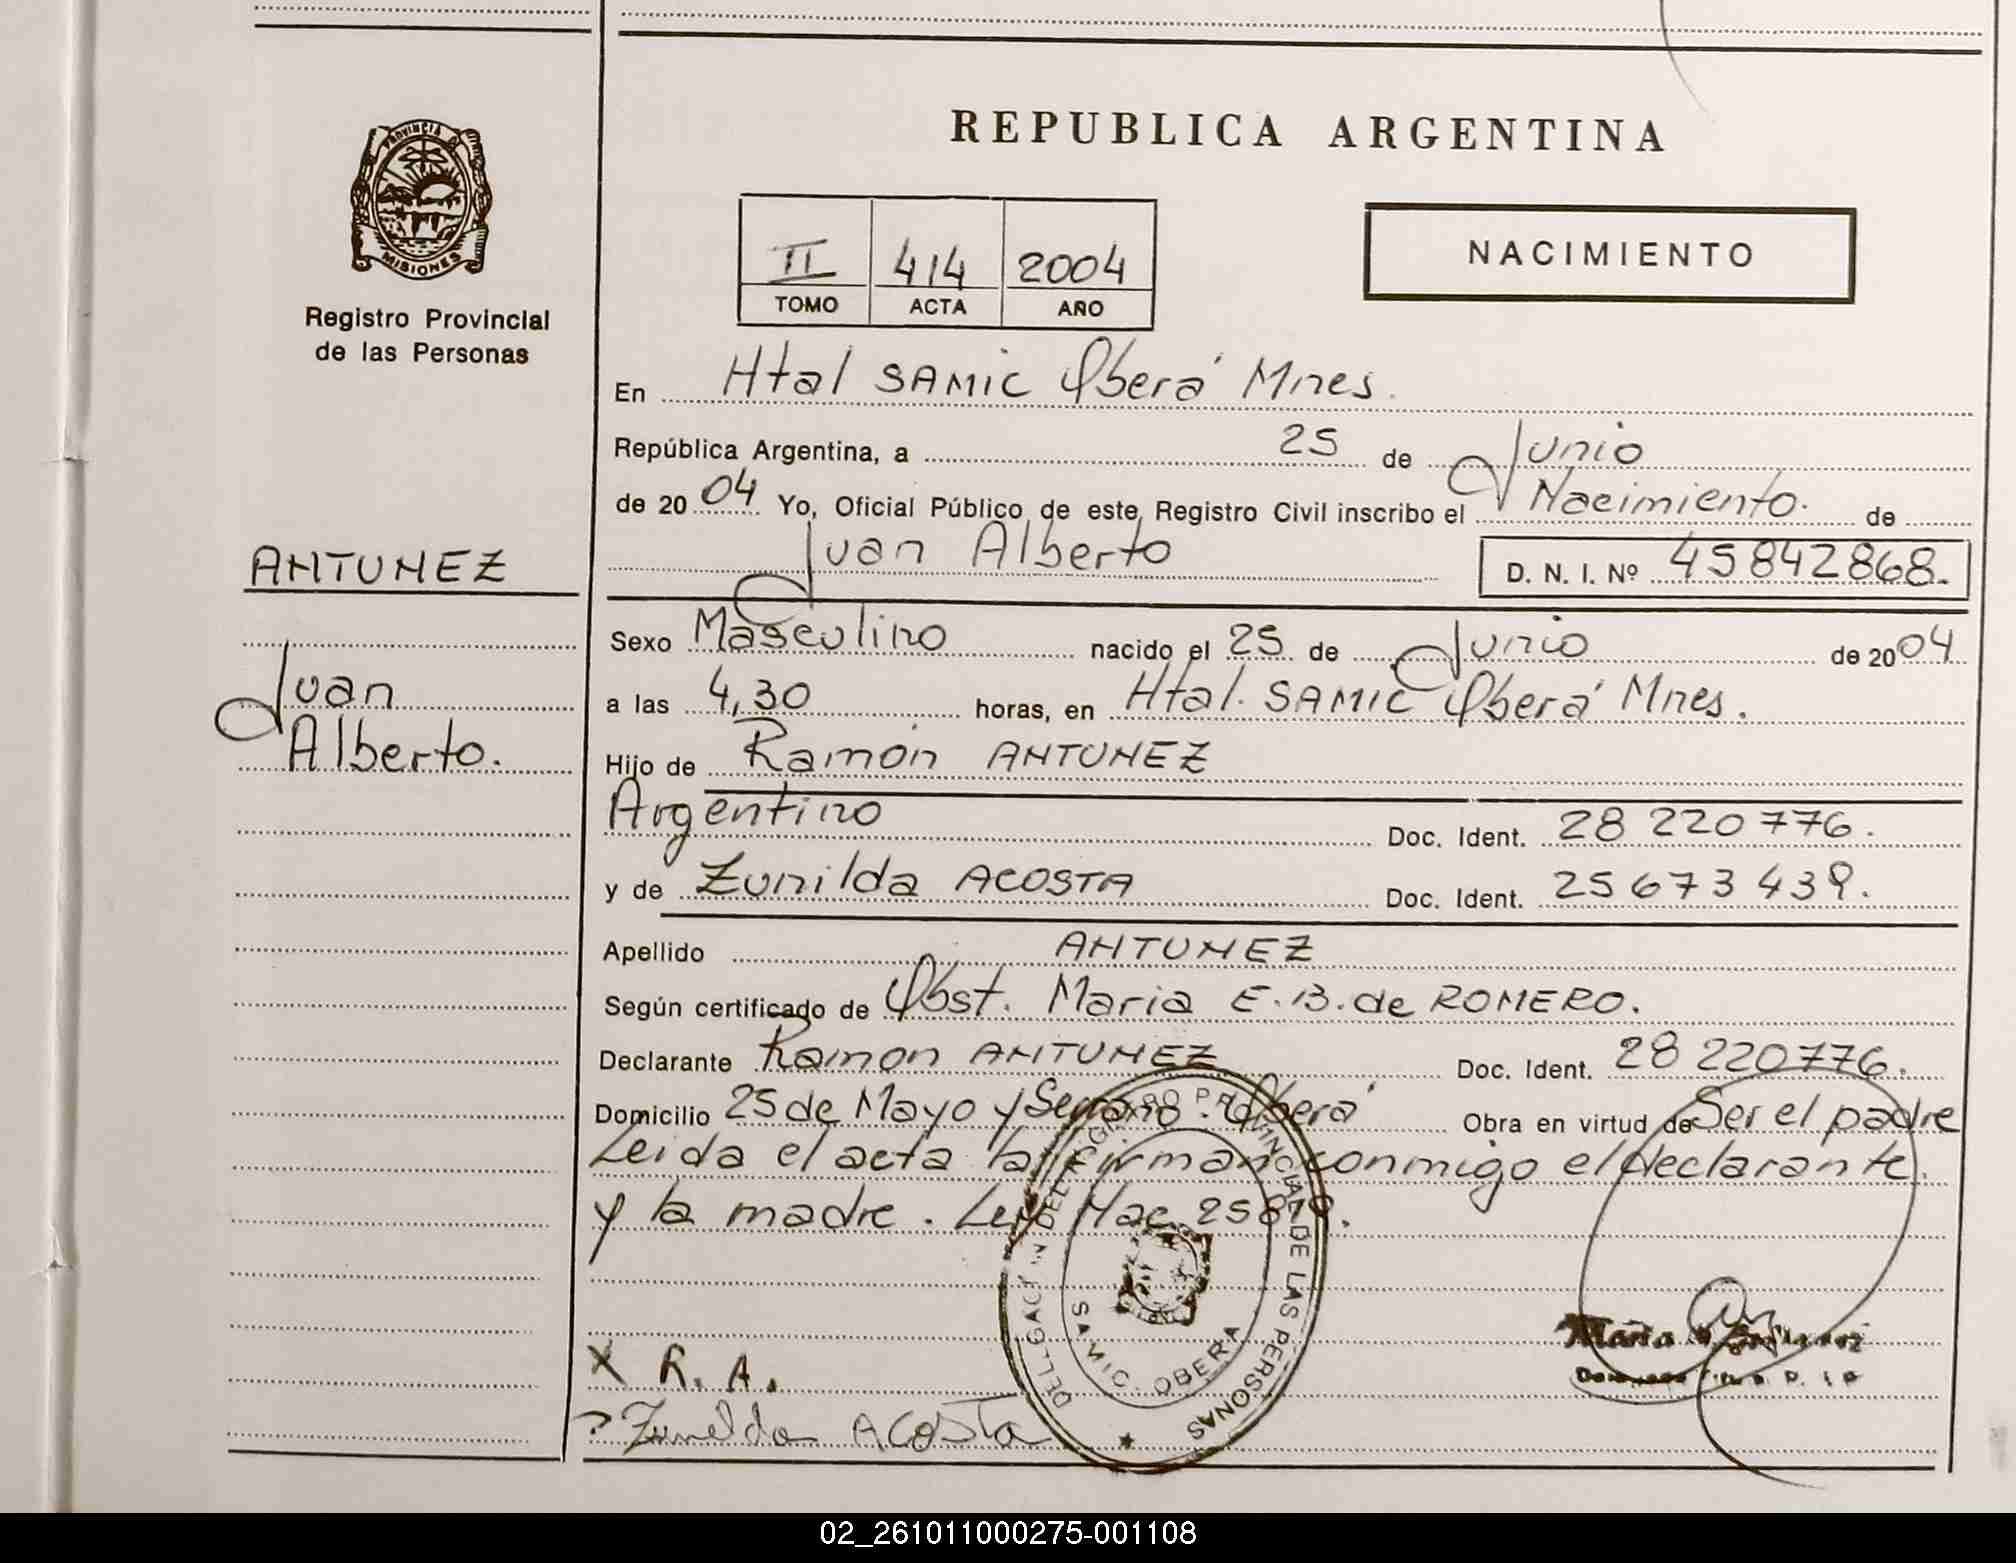 REPUBLICA ARGENTINA
PROVINCIA DE
MISIONES
Registro Provincial
de las Personas
II 414 2004
TOMO ACTA AÑO
NACIMIENTO
En Htal SAMIC Oberá Mnes.
República Argentina, a 25 de Junio
de 2004 Yo, Oficial Público de este Registro Civil inscribo el Nacimiento. de
Juan Alberto D. N. I. Nº 45842868.
ANTUNEZ
Juan
Alberto.
Sexo Masculino nacido el 25 de Junio de 2004
a las 4,30 horas, en Htal. SAMIC Oberá Mnes.
Hijo de Ramón ANTUNEZ
Argentino Doc. Ident. 28 220 776.
y de Zunilda ACOSTA Doc. Ident. 25 673 439.
Apellido ANTUNEZ
Según certificado de Obst. Maria E. B. de ROMERO.
Declarante Ramon ANTUNEZ Doc. Ident. 28 220776.
Domicilio 25 de Mayo y Serrano. Oberá Obra en virtud de Ser el padre
Leida el acta la firman conmigo el declarante
y la madre. Ley Nac. 25819.
DELEGACION DEL REGISTRO PROVINCIAL DE LAS PERSONAS
SAMIC. OBERA
Maria
X R. A.
Zunilda ACOSTA
02_261011000275-001108